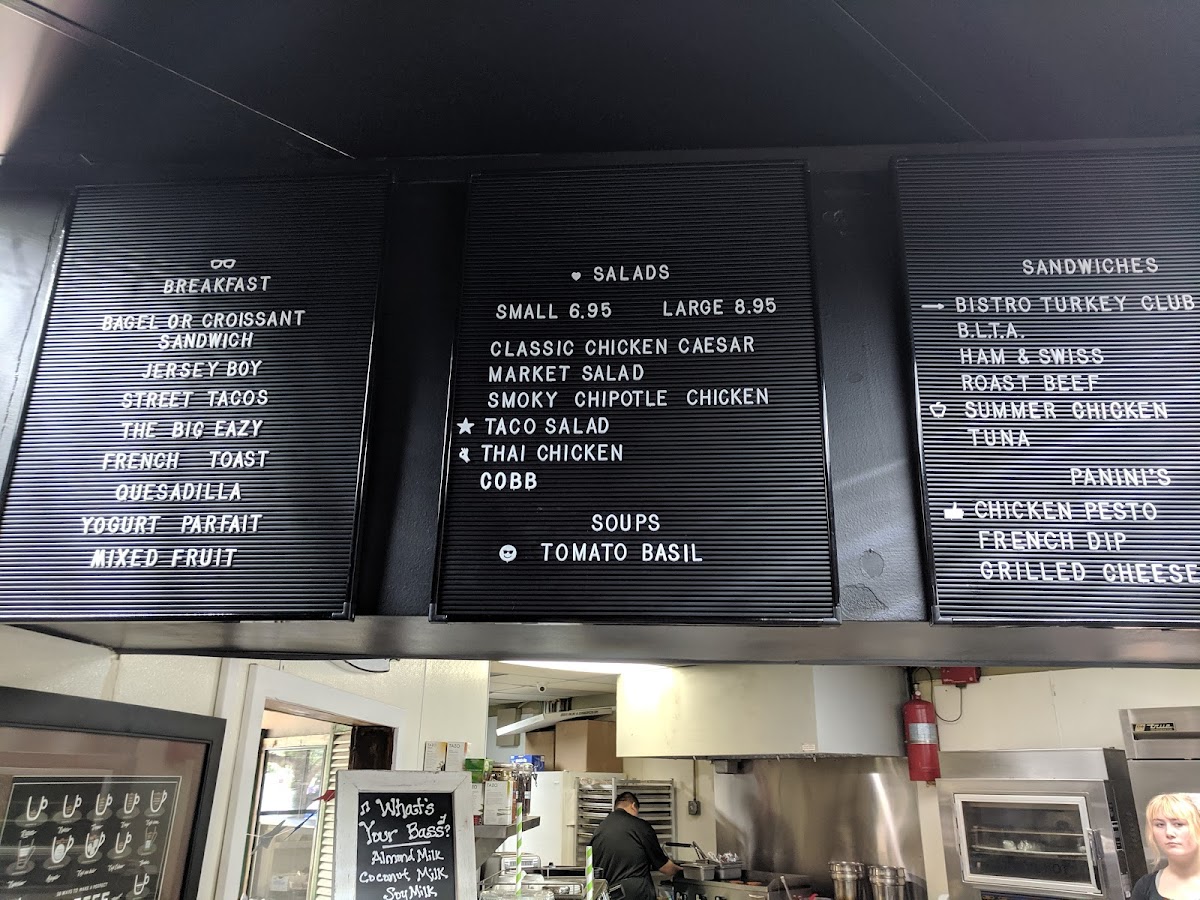 BREAKFAST
BAGEL OR CROISSANT
SANDWICH
JERSEY BOY
STREET TACOS
THE BIG EAZY
FRENCH TOAST
QUESADILLA
YOGURT PARFAIT
MIXED FRUIT
SALADS
SMALL 6.95 LARGE 8.95
CLASSIC CHICKEN CAESAR
MARKET SALAD
SMOKY CHIPOTLE CHICKEN
TACO SALAD
THAI CHICKEN
COBB
SOUPS
TOMATO BASIL
SANDWICHES
BISTRO TURKEY CLUB
B.L.T.A.
HAM & SWISS
ROAST BEEF
SUMMER CHICKEN
TUNA
PANINI'S
CHICKEN PESTO
FRENCH DIP
GRILLED CHEESE
What's
Your Bass?
Almond Milk
Coconut Milk
Soy Milk